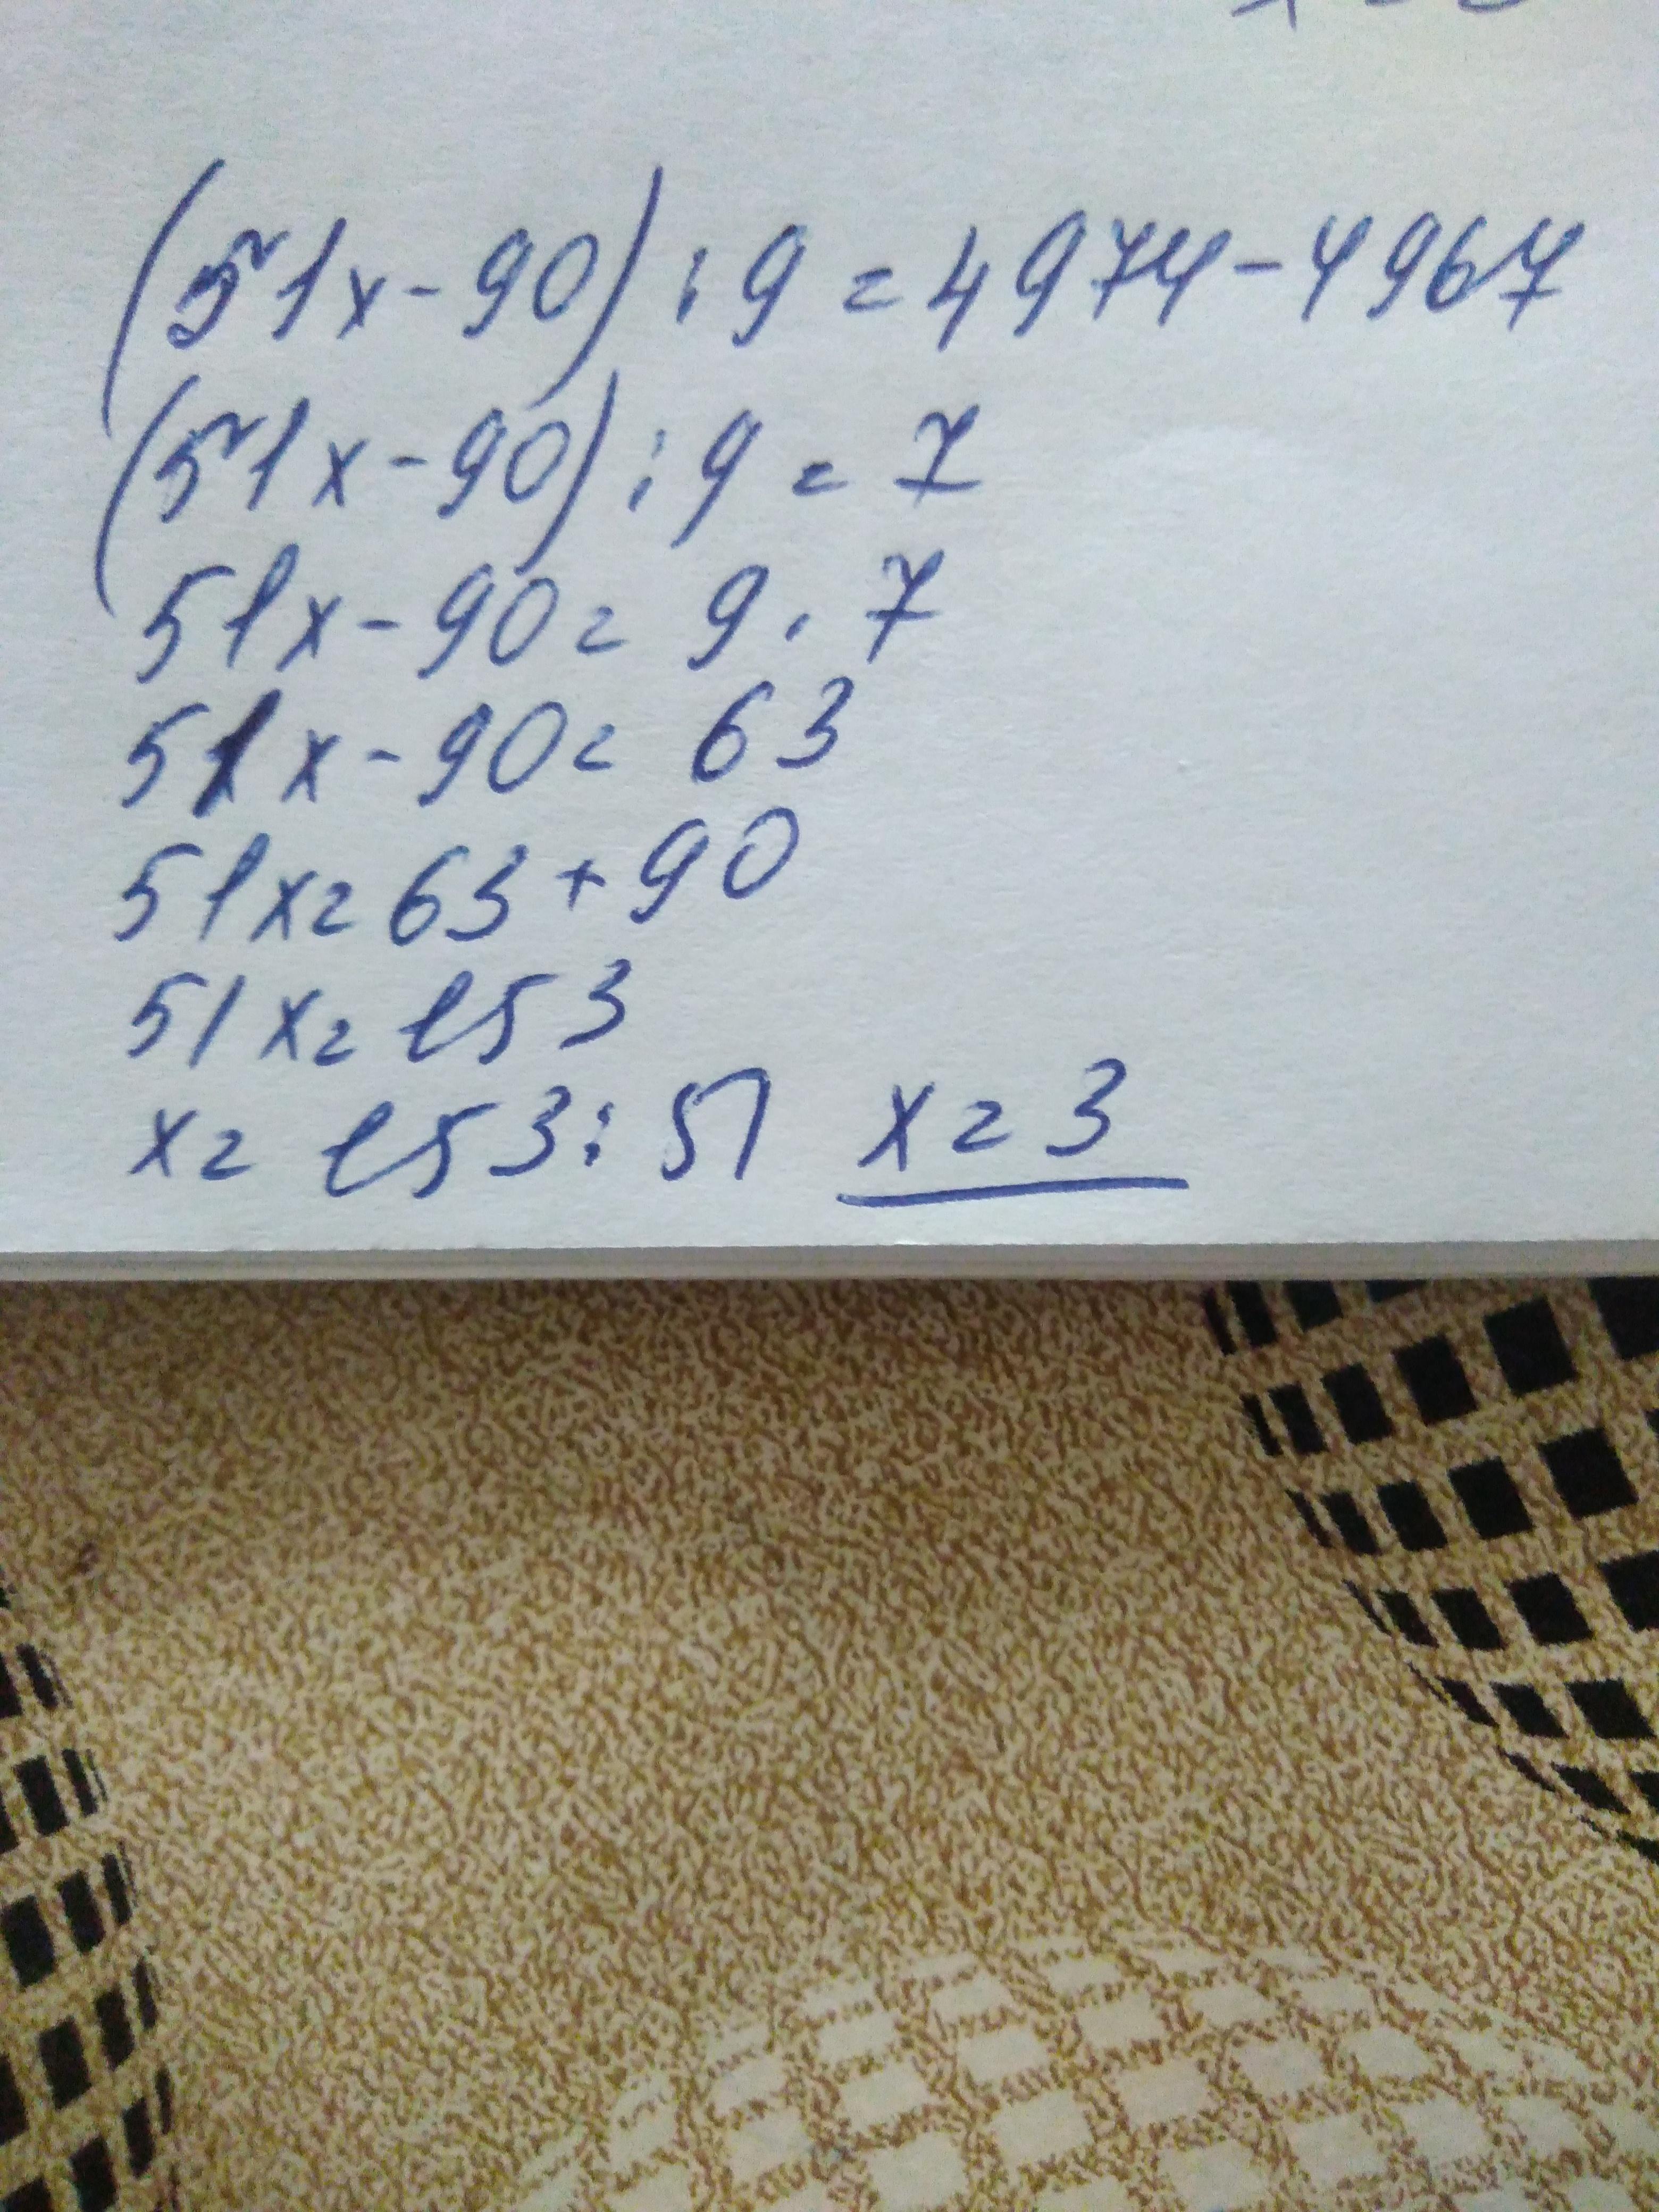 (51x-90):9=4974-4967
(51x-90):9=7
51x-90=9·7
51x-90=63
51x=63+90
51x=153
x=153:51 x=3